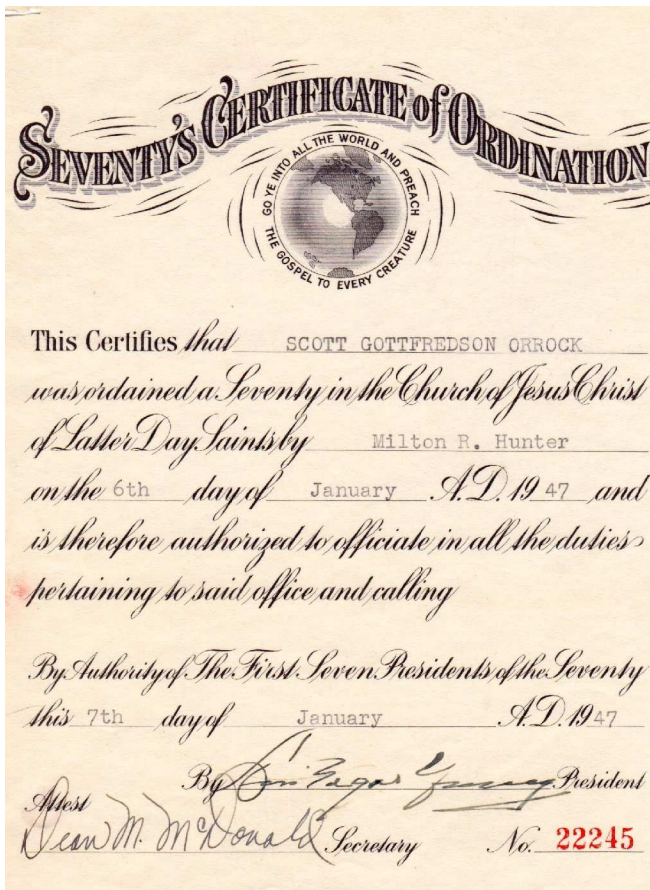 SEVENTY'S CERTIFICATE of ORDINATION
GO YE INTO ALL THE WORLD AND PREACH
THE GOSPEL TO EVERY CREATURE
This Certifies that SCOTT GOTTFREDSON ORROCK
was ordained a Seventy in the Church of Jesus Christ
of Latter Day Saints by Milton R. Hunter
on the 6th day of January A.D. 19 47 and
is therefore authorized to officiate in all the duties
pertaining to said office and calling
By Authority of The First Seven Presidents of the Seventy
this 7th day of January A.D. 19 47
By Levi Edgar Young President
Attest
Dean M. McDonald Secretary No. 22245